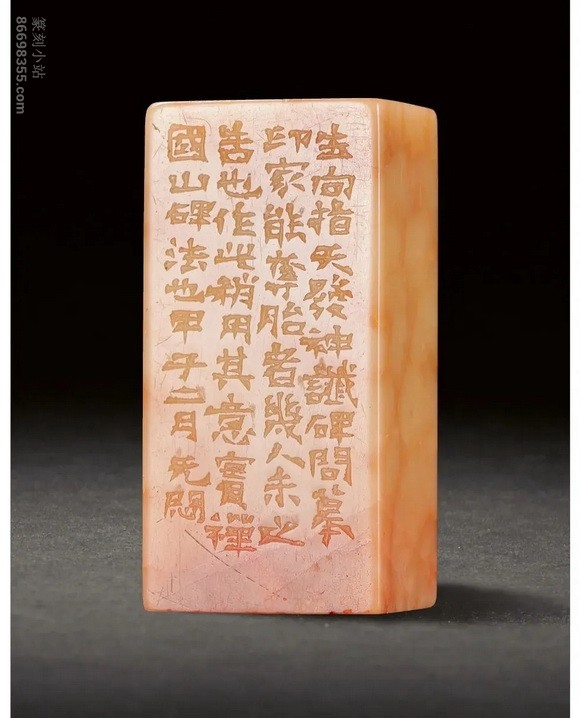 向指天發神讖碑問摹
印家能奪胎者幾人未之
告也作此稍用其意實禪
國山碑法也甲子二月无悶
篆刻小站
86698355.com